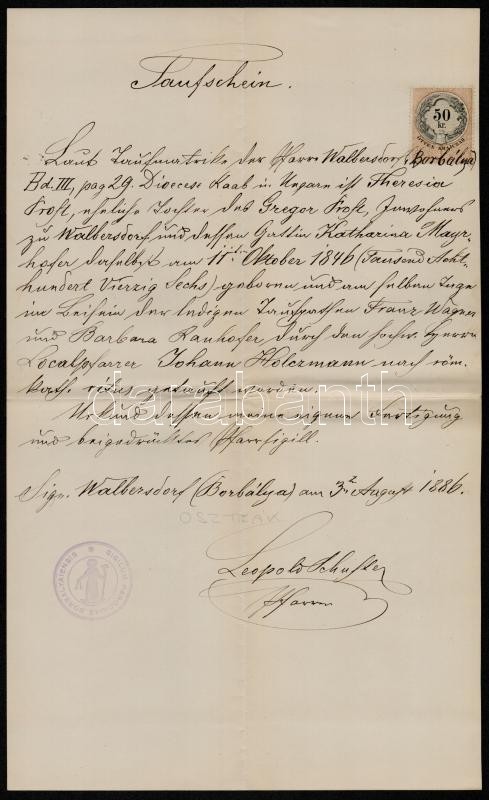 Taufschein.
50
kr.
Laut Taufmatrike der Pfarre Walbersdorf (Borbálya)
Bd. III, pag 29. Dioecese Raab in Ungarn ist Theresia
Frost, eheliche Tochter des Gregor Frost, Inwohners
zu Walbersdorf und dessen Gattin Katharina Mayr-
hofer daselbst am 11t. Oktober 1846 (Tausend Acht-
hundert Vierzig Sechs) geboren und am selben Tage
im Beisein der ledigen Taufpathen Franz Wagner
und Barbara Ranhofer durch den hochw. Herrn
Localpfarrer Johann Holczmann nach röm.
kath. ritus getauft worden.
Urkund dessen meine eigene Fertigung
und beigedrücktes Pfarrsigill.
Sign. Walbersdorf (Borbálya) am 3t August 1886.
Leopold Schuster
Pfarrer
SIGILLUM PAROCHIAE BORBALYAIENSIS
darabanth